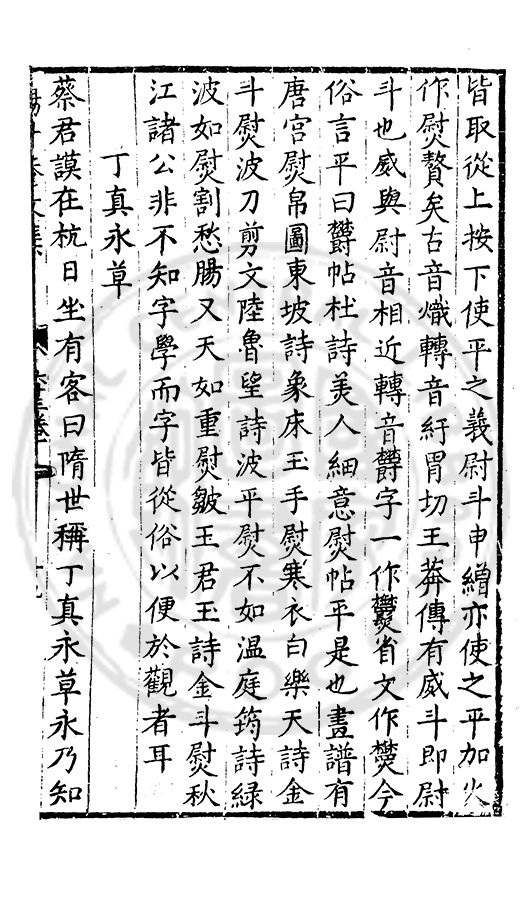 皆取從上按下使平之義尉斗申繒亦使之平加火
作熨贅矣古音熾轉音紆胃切王莽傳有威斗即尉
斗也威與尉音相近轉音欝字一作爩省文作爕今
俗言平曰欝帖杜詩美人細意熨帖平是也畫譜有
唐宮熨帛圖東坡詩象床玉手熨寒衣白樂天詩金
斗熨波刀剪文陸魯望詩波平熨不如溫庭筠詩綠
波如熨割愁腸又天如重熨皺王君玉詩金斗熨秋
江諸公非不知字學而字皆從俗以便於觀者耳
丁真永草
蔡君謨在杭日坐有客曰隋世稱丁真永草永乃知